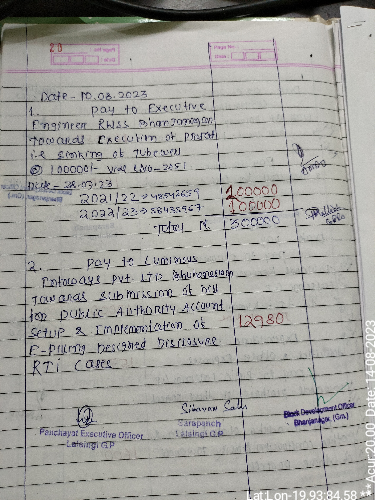 28
Page No.
Date - 10.08.2023
1. Pay to Executive
Engineer RWSS Bhanjanagar
Towards Execution of Project
i.e sinking of Tubewell
@ 100000/- vide LNo-2051
Date - 28.03.23
2021/22 → 48542659 100000
2022/23 → 58435567 100000
300000
2. Pay to Luminous
Infoways Pvt LTD Bhubaneswar
Towards submission of bill
for Public Authority Account
Setup & Implementation of
F-Filing Designed Disclosure 12980
RTI Cases
Panchayat Executive Officer
Lalsingi G.P
Sarapanch
Lalsingi G.P
Block Development Officer
Bhanjanagar, (Gm.)
Lat Lon-19.93:84.58 ** Acu: 20.00 Date: 14-08-2023